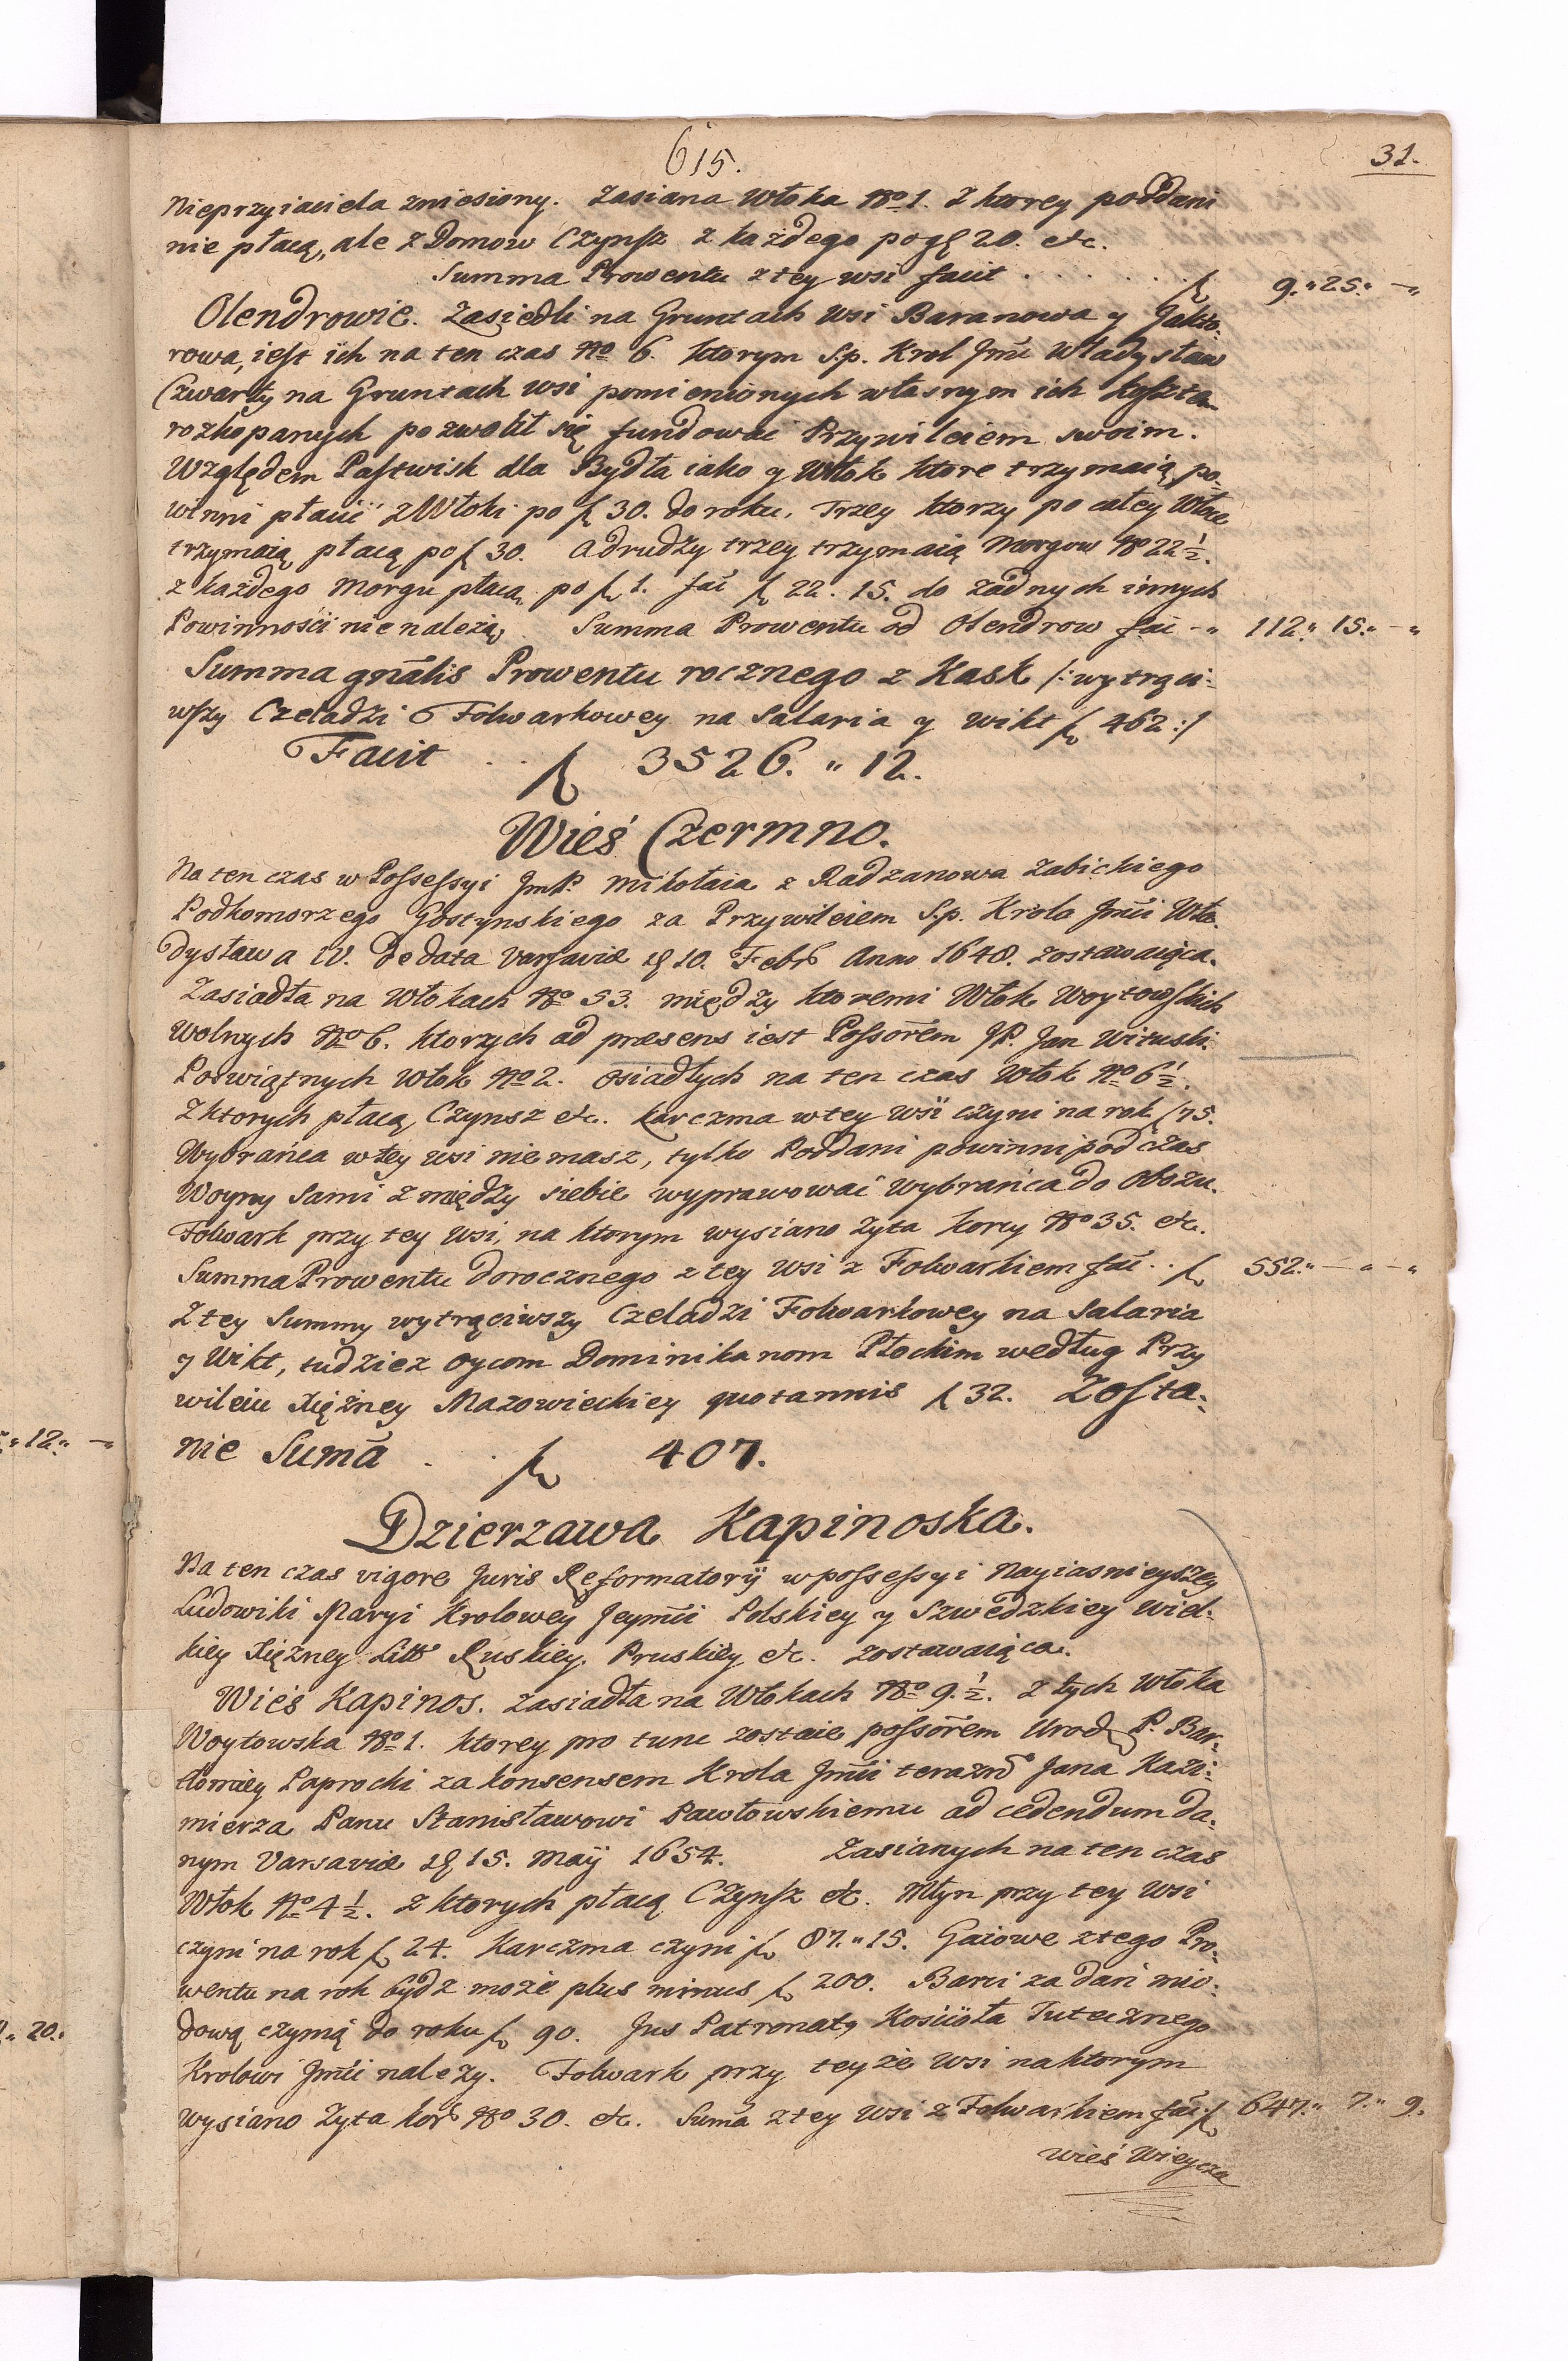 615.
31.
Nieprzyiaciela zniesiony. Zasiana Włoka No 1. z ktorey poddani
nie płacą, ale z Domow Czynsz z każdego po gl 20. etc.
Summa Prowentu z tey wsi facit . . . . . . . fl 9.„ 25.„ —„
Olendrowie. Zasiedli na Gruntach wsi Baranowa y Jakto-
rowa, iest ich na ten czas No 6. ktorym S.p. Krol Jmć Władysław
Czwarty na Gruntach wsi pomienionych własnym ich kosztem
rozkopanych pozwolił się fundować Przywileiem swoim.
Względem Pastwisk dla Bydła iako y Włok ktore trzymaią po-
winni płacić z Włoki po fl 30. do roku. Trzey ktorzy po całey Włoce
trzymaią płacą po fl 30. a drudzy trzey trzymaią Morgow No 22 ½.
z każdego Morgu płacą po fl 1. fac fl 22. 15. do żadnych innych
Powinności nie należą. Summa Prowentu od Olendrow fac -„ 112.„ 15.„ —„
Summa gnālis Prowentu rocznego z Kask /: wytrąci-
wszy Czeladzi Folwarkowey na Salaria y wikt fl 462 :/
Facit . . fl 3526. „ 12.
Wieś Czermno.
Na ten czas w Possessyi JmP. Mikołaia z Radzanowa Zabickiego
Podkomorzego Gostynskiego za Przywileiem S.p. Krola Jmći Wła-
dysława IV. de data Varsaviæ d 10. Febr Anno 1648. zostawaiąca.
Zasiadła na Włokach No 53. między ktoremi Włok Woytowskich
Wolnych No 6. ktorych ad præsens iest Possorem JP. Jan Wituski.
Poświątnych Włok No 2. osiadłych na ten czas Włok No 6 ½.
z ktorych płacą Czynsz etc. Karczma w tey wsi czyni na rok fl 75.
Wybrańca w tey wsi nie masz, tylko Poddani powinni pod czas
Woyny sami z między siebie wyprawować wybrańca do Obozu.
Folwark przy tey wsi, na ktorym wysiano żyta korcy No 35. etc.
Summa Prowentu dorocznego z tey wsi z Folwarkiem fac . . fl 552.„ —„ —„
z tey Summy wytrąciwszy Czeladzi Folwarkowey na Salaria
y Wikt, tudziez Oycom Dominikanom Płockim według Przy
wileiu Xiężney Mazowieckiey quotannis fl 32. Zosta-
nie Sumā . . fl 407.
Dzierzawa Kapinoska.
Na ten czas vigore Juris Reformatorij w possessyi Nayiasnieyszey
Ludowiki Maryi Krolowey Jeymći Polskiey y Szwedzkiey Wiel-
kiey Xiężney Litt Ruskiey, Pruskiey etc. zostawaiąca.
Wieś Kapinos. zasiadła na Włokach No 9. ½. z tych Włoka
Woytowska No 1. ktorey pro tunc zostaie possorem Urod P. Bar-
tłomiey Paprocki za konsensem Krola Jmći terazn Jana Kazi-
mierza Panu Stanisławowi Pawłowskiemu ad cedendum da-
nym Varsaviæ d 15. Maij 1654. Zasianych na ten czas
Włok No 4 ½. z ktorych płacą Czynsz etc. Młyn przy tey wsi
czyni na rok fl 24. Karczma czyni fl 87.„ 15. Gaiowe z tego Pro-
wentu na rok bydz może plus minus fl 200. Barci za dań mio-
dową czynią do roku fl 90. Jus Patronat9 Kościoła Tutecznego
Krolowi Jmći należy. Folwark przy teyże wsi na ktorym
wysiano żyta kor No 30. etc. Suma z tey wsi z Folwarkiem fac fl 647.„ 7.„ 9.
wieś Wieycza
„ 12.„ —„
„ 20.„